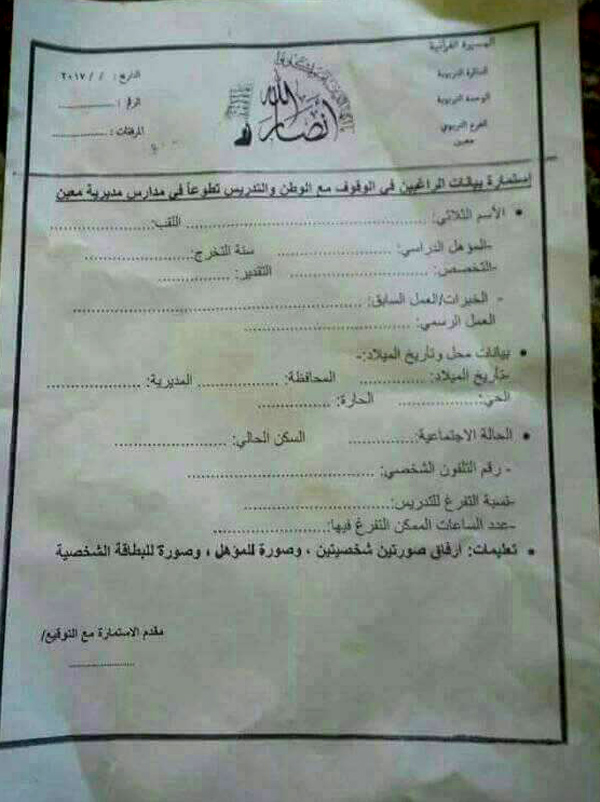 المسيرة القرآنية
الدائرة التربوية
الوحدة التربوية
الفرع التربوي
معين
أنصار الله
التاريخ : / / ٢٠١٧
الرقم : ..................
المرفقات : ..................
إستمارة بيانات الراغبين في الوقوف مع الوطن والتدريس تطوعاً في مدارس مديرية معين
• الأسم الثلاثي: .................. اللقب:..................
-المؤهل الدراسي: .................. سنة التخرج:..................
-التخصص: .................. التقدير: ..................
- الخبرات/العمل السابق: ..................
العمل الرسمي: ..................
• بيانات محل وتأريخ الميلاد:-
-تأريخ الميلاد: .................. المحافظة: .................. المديرية: ..................
الحي:.................. الحارة: ..................
• الحالة الاجتماعية:.................. السكن الحالي: ..................
- رقم التلفون الشخصي: ..................
-نسبة التفرغ للتدريس:..................
-عدد الساعات الممكن التفرغ فيها:..................
• تعليمات: أرفاق صورتين شخصيتين ، وصورة للمؤهل ، وصورة للبطاقة الشخصية
مقدم الاستمارة مع التوقيع/
..................